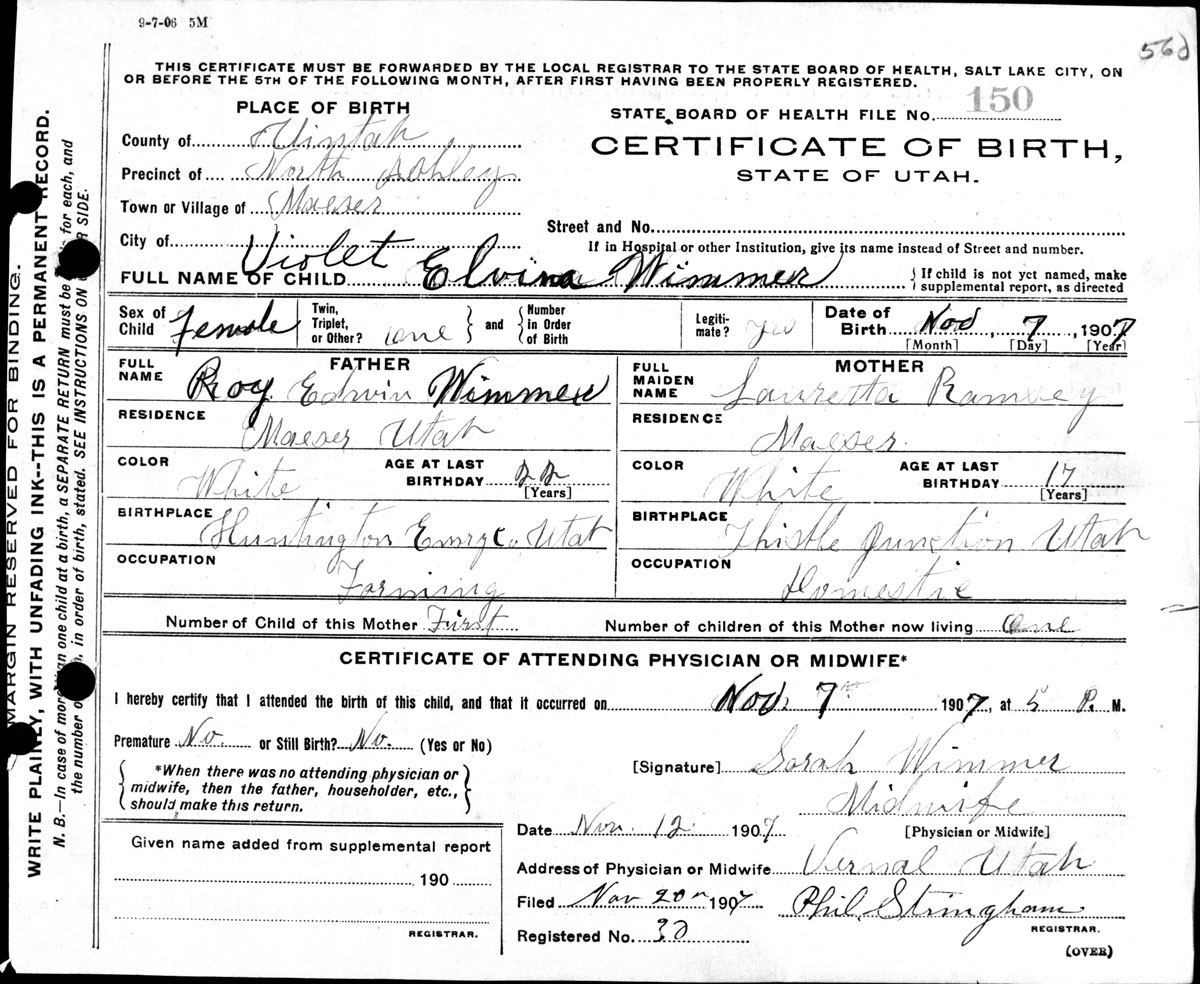 9-7-06 5M
56
THIS CERTIFICATE MUST BE FORWARDED BY THE LOCAL REGISTRAR TO THE STATE BOARD OF HEALTH, SALT LAKE CITY, ON
OR BEFORE THE 5TH OF THE FOLLOWING MONTH, AFTER FIRST HAVING BEEN PROPERLY REGISTERED.
MARGIN RESERVED FOR BINDING.
WRITE PLAINLY, WITH UNFADING INK--THIS IS A PERMANENT RECORD.
N. B.—In case of more than one child at a birth, a SEPARATE RETURN must be for each, and
the number in order of birth, stated. SEE INSTRUCTIONS ON SIDE.
PLACE OF BIRTH
County of Uintah
Precinct of North Ashley
Town or Village of Maeser
City of
STATE BOARD OF HEALTH FILE No. 150
CERTIFICATE OF BIRTH,
STATE OF UTAH.
Street and No.
If in Hospital or other Institution, give its name instead of Street and number.
FULL NAME OF CHILD Violet Elvina Wimmer
{If child is not yet named, make
supplemental report, as directed
Sex of Child Female
Twin, Triplet, or Other? one } and { Number in Order of Birth
Legiti- mate? yes
Date of Birth Nov 7, 1907
[Month] [Day] [Year]
FATHER
FULL NAME Roy Edwin Wimmer
RESIDENCE Maeser Utah
COLOR White
AGE AT LAST BIRTHDAY 22 [Years]
BIRTHPLACE Huntington Emry Co Utah
OCCUPATION Farming
MOTHER
FULL MAIDEN NAME Lauretta Ramsey
RESIDENCE Maeser.
COLOR White
AGE AT LAST BIRTHDAY 17 [Years]
BIRTHPLACE Thistle Junction Utah
OCCUPATION Domestic
Number of Child of this Mother First
Number of children of this Mother now living One
CERTIFICATE OF ATTENDING PHYSICIAN OR MIDWIFE*
I hereby certify that I attended the birth of this child, and that it occurred on Nov 7th 1907, at 5 P. M.
Premature No. or Still Birth? No. (Yes or No)
{*When there was no attending physician or
midwife, then the father, householder, etc.,
should make this return.}
[Signature] Sarah Wimmer
Midwife
[Physician or Midwife]
Date Nov. 12 1907
Address of Physician or Midwife Vernal Utah
Filed Nov 20 1907 Phil Stringham
REGISTRAR.
Registered No.
(OVER)
Given name added from supplemental report
190
REGISTRAR.